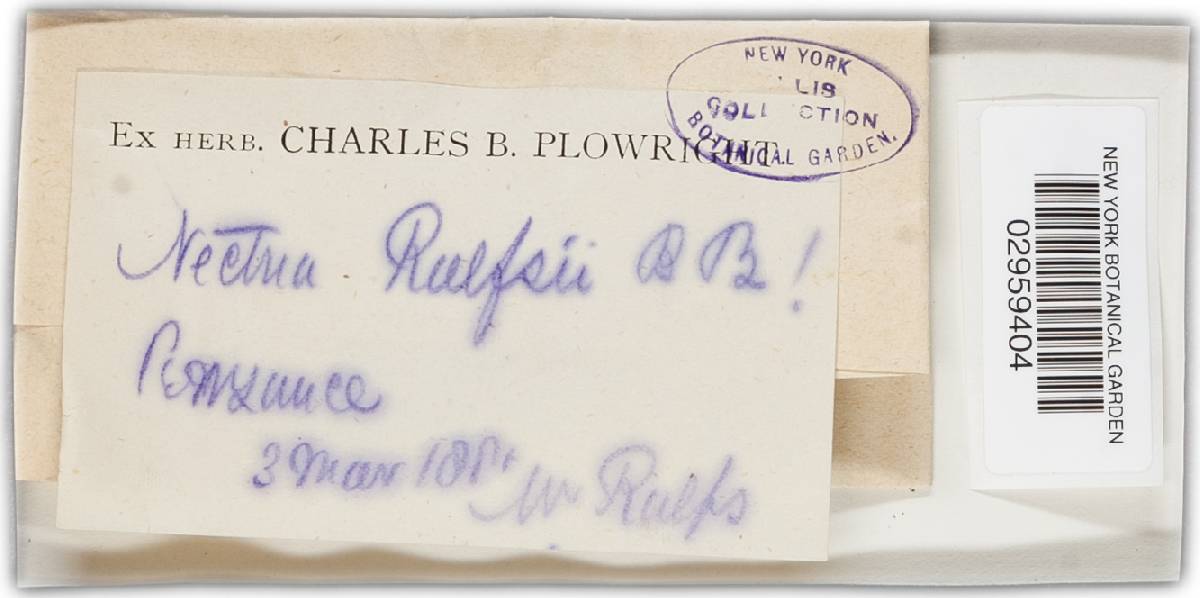 NEW YORK
LIS
COLL CTION
BOTANICAL GARDEN.
EX HERB. CHARLES B. PLOWRIGHT
Nectria Ralfsii B B !
Penzance
3 Mar Mr Ralfs
NEW YORK BOTANICAL GARDEN
02959404